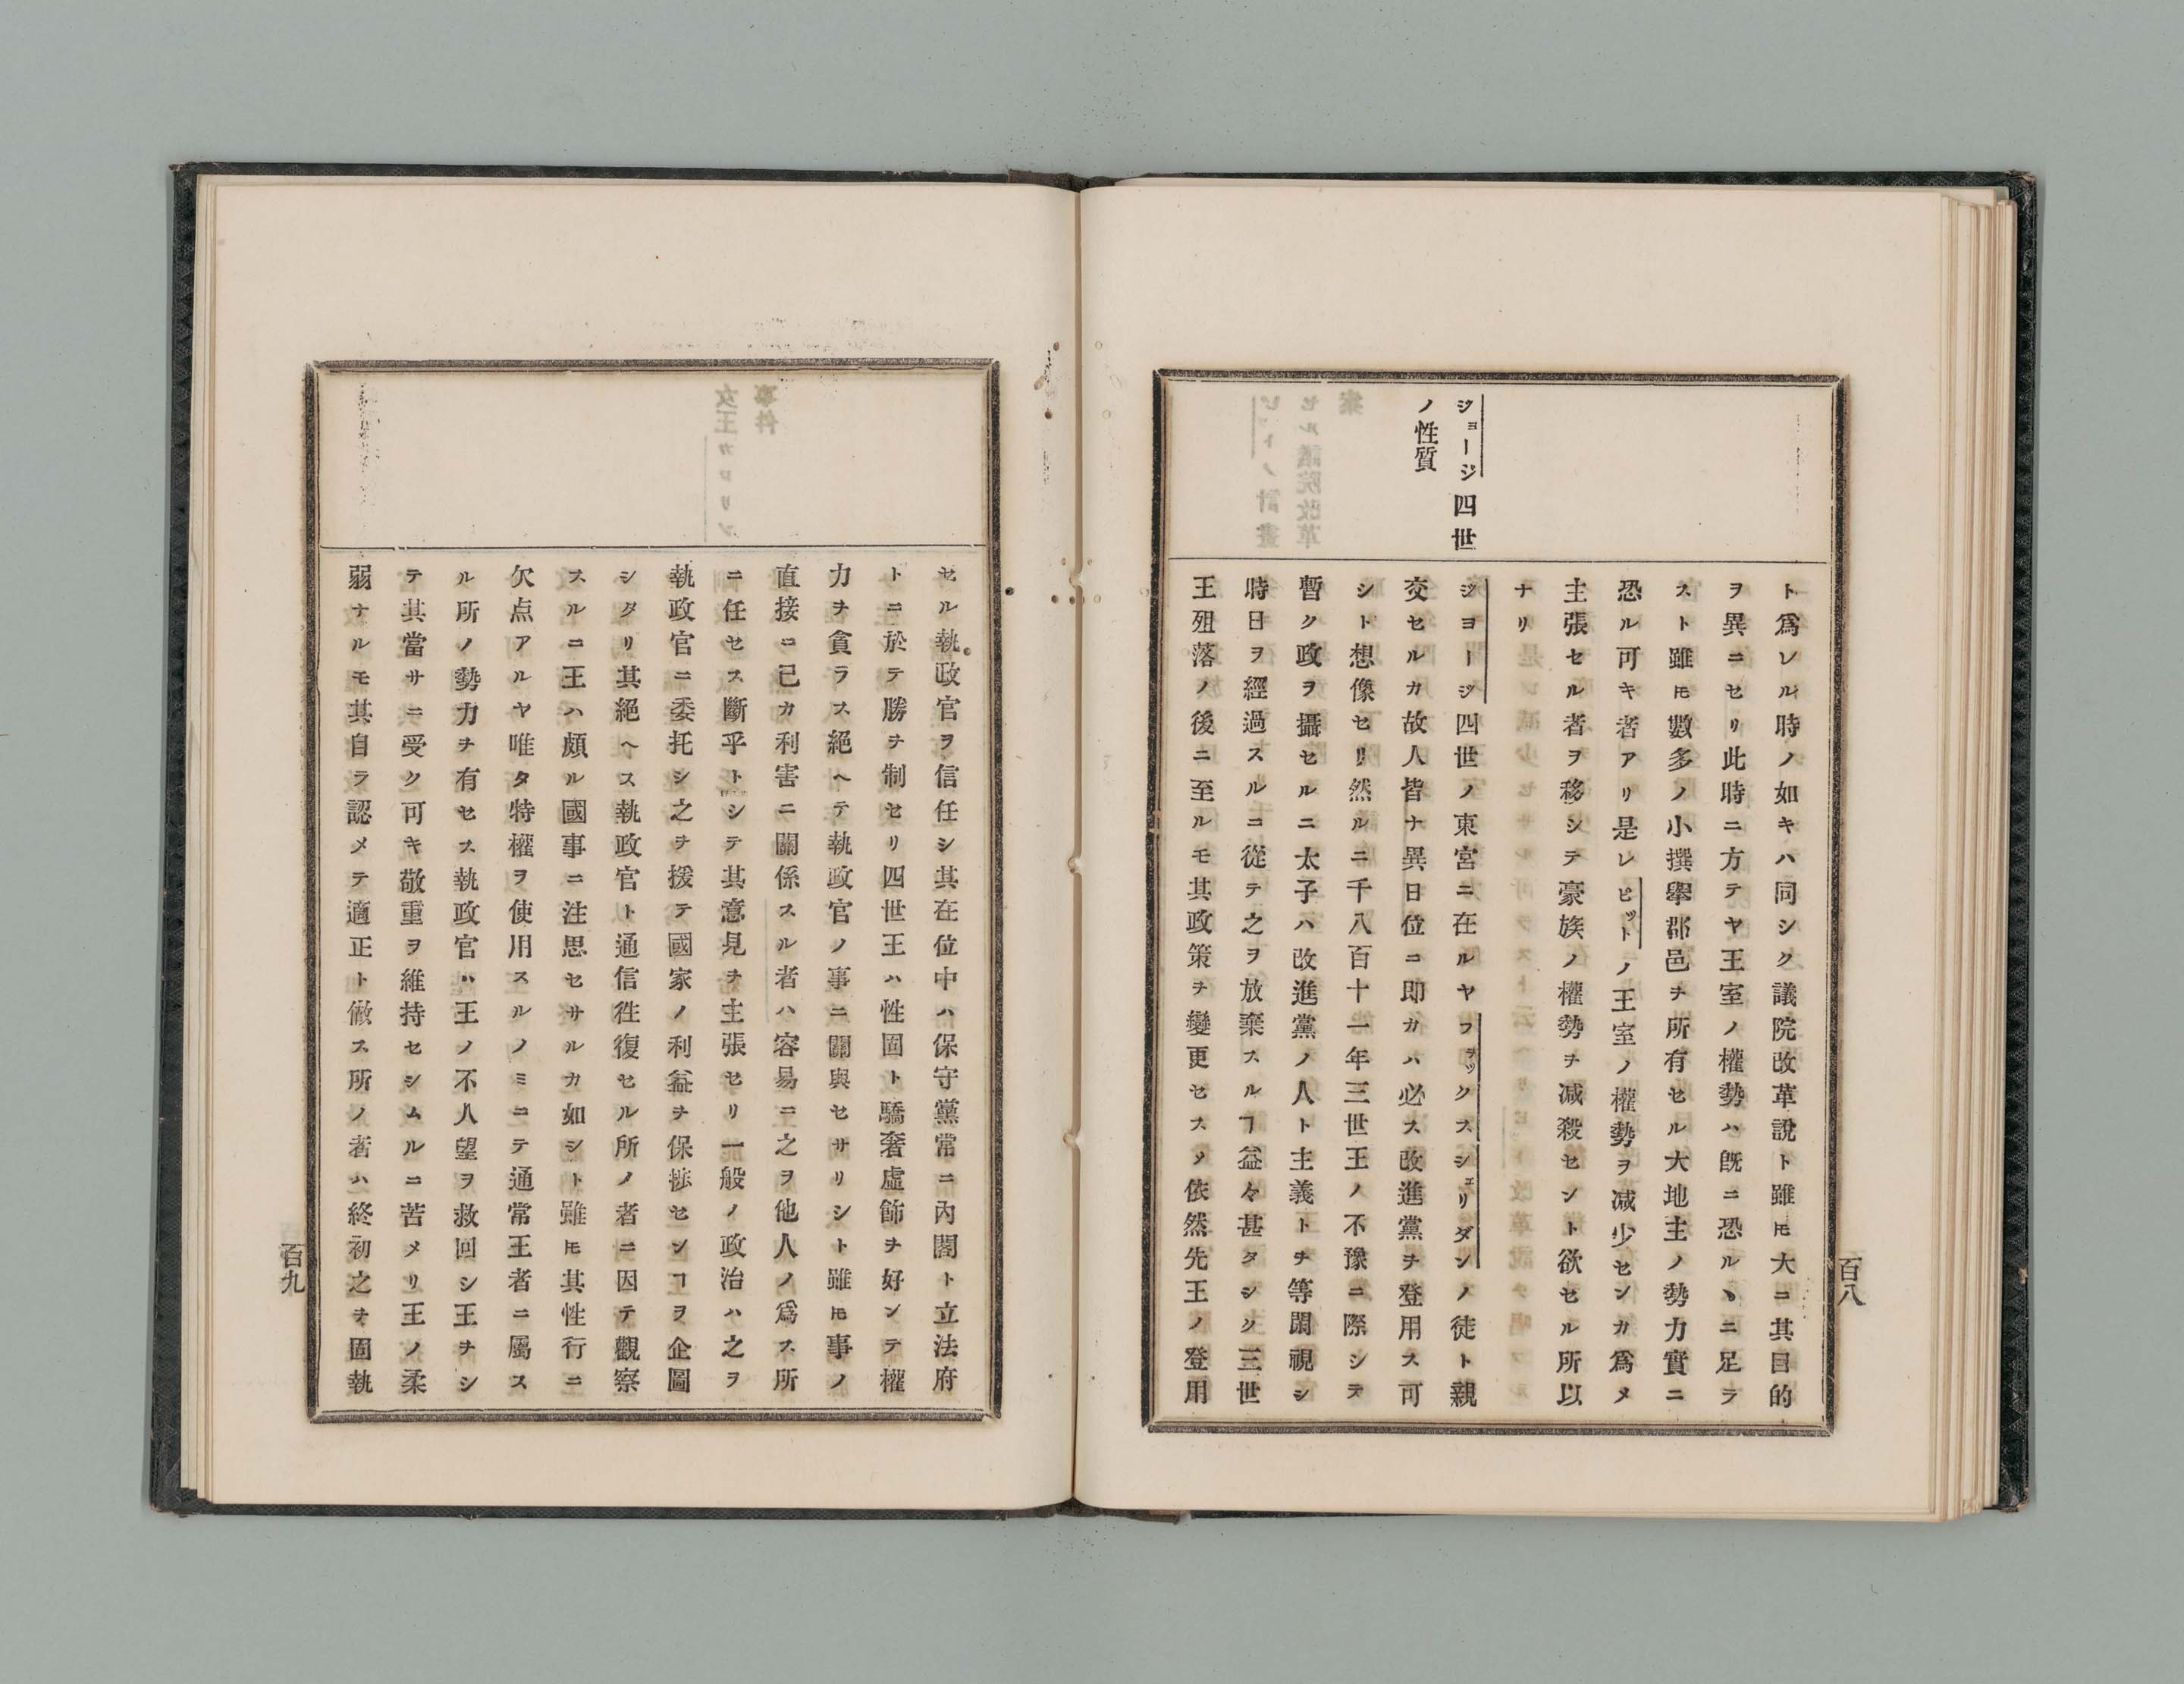 百八
ジョージ四世
ノ性質
ト爲レル時ノ如キハ同シク議院改革說ト雖𪜈大ニ其目的
ヲ異ニセリ此時ニ方テヤ王室ノ權勢ハ旣ニ恐ルヽニ足ラ
スト雖𪜈數多ノ小撰擧郡邑ヲ所有セル大地主ノ勢力實ニ
恐ル可キ者アリ是レピットノ王室ノ權勢ヲ减少センカ爲メ
主張セル者ヲ移シテ豪族ノ權勢ヲ减殺セント欲セル所以
ナリ
ジヨージ四世ノ東宮ニ在ルヤフヲックスシェリダンノ徒ト親
交セルカ故人皆ナ異日位ニ即カハ必ス改進黨ヲ登用ス可
シト想像セリ然ルニ千八百十一年三世王ノ不豫ニ際シテ
暫ク政ヲ攝セルニ太子ハ改進黨ノ人ト主義トヲ等閑視シ
時日ヲ經過スルニ從テ之ヲ放棄スルヿ益々甚タシク三世
王殂落ノ後ニ至ルモ其政策ヲ變更セスメ依然先王ノ登用
セル執政官ヲ信任シ其在位中ハ保守黨常ニ內閣ト立法府
トニ於テ勝ヲ制セリ四世王ハ性固ト驕奢虛飾ヲ好ンテ權
力ヲ貪ラス絕ヘテ執政官ノ事ニ關與セサリシト雖𪜈事ノ
直接ニ己カ利害ニ關係スル者ハ容易ニ之ヲ他人ノ爲ス所
ニ任セス斷乎トシテ其意見ヲ主張セリ一般ノ政治ハ之ヲ
執政官ニ委托シ之ヲ援テ國家ノ利益ヲ保捗センヿヲ企圖
シタリ其絕ヘス執政官ト通信徃復セル所ノ者ニ因テ觀察
スルニ王ハ頗ル國事ニ注思セサルカ如シト雖𪜈其性行ニ
欠点アルヤ唯タ特權ヲ使用スルノミニテ通常王者ニ屬ス
ル所ノ勢力ヲ有セス執政官ハ王ノ不人望ヲ救回シ王ヲシ
テ其當サニ受ク可キ敬重ヲ維持セシムルニ苦メリ王ノ柔
弱ナルモ其自ラ認メテ適正ト做ス所ノ者ハ終初之ヲ固執
百九